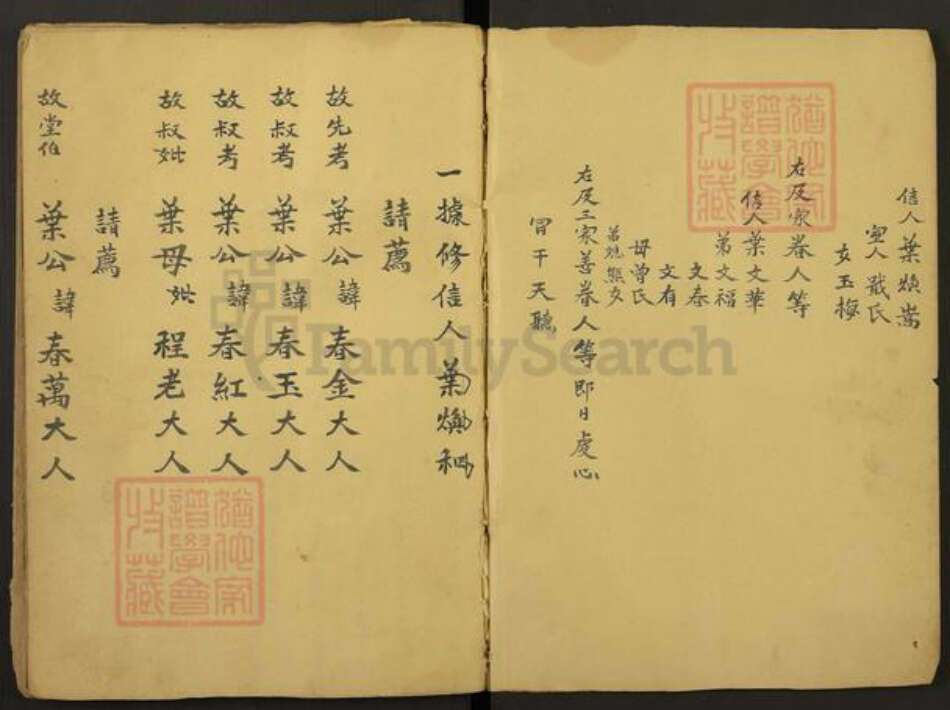 信人葉煥嵩
室人戴氏
女玉梅
右及家眷人等
信人葉文華
弟文福
文春
文有
母曾氏
右及三家善眷人等即日虔心
冒干天聽
一據修信人葉煥
請薦
故先考 葉公諱春金大人
故叔考 葉公諱春玉大人
故叔考 葉公諱春紅大人
故叔妣 葉母妣程老大人
請薦
故堂伯 葉公諱春萬大人
FamilySearch